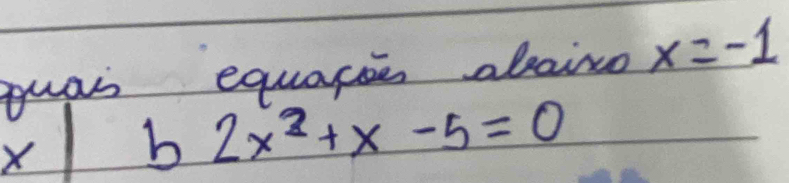 quais equações abaixo x = -1
x | b 2x² + x - 5 = 0